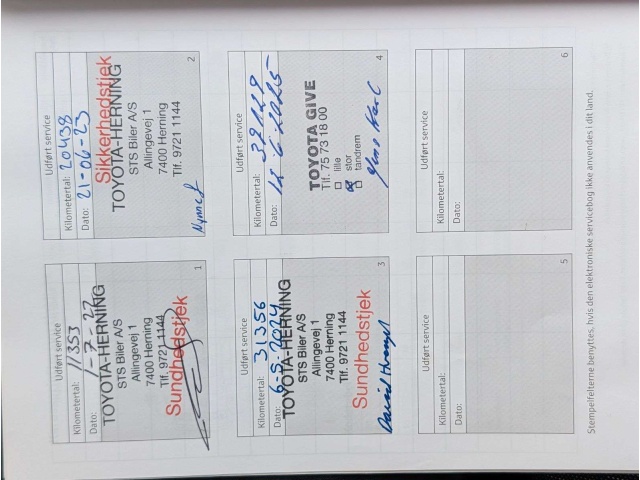 Udført service
Kilometertal: 11353
Dato: 1-7-22
TOYOTA-HERNING
STS Biler A/S
Allingevej 1
7400 Herning
Tlf. 9721 1144
Sundhedstjek
1
Udført service
Kilometertal: 20438
Dato: 21-06-23
Sikkerhedstjek
TOYOTA-HERNING
STS Biler A/S
Allingevej 1
7400 Herning
Tlf. 9721 1144
2
Udført service
Kilometertal: 31356
Dato: 6-5-2024
TOYOTA-HERNING
STS Biler A/S
Allingevej 1
7400 Herning
Tlf. 9721 1144
Sundhedstjek
3
Udført service
Kilometertal: 39129
Dato: 12.6.2025
TOYOTA GIVE
Tlf. 75 73 18 00
lille
stor
tandrem
4
Udført service
Kilometertal:
Dato:
5
Udført service
Kilometertal:
Dato:
6
Stempelfelterne benyttes, hvis den elektroniske servicebog ikke anvendes i dit land.